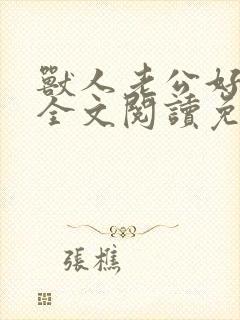 獸人老公好
全文閱讀免
張樵